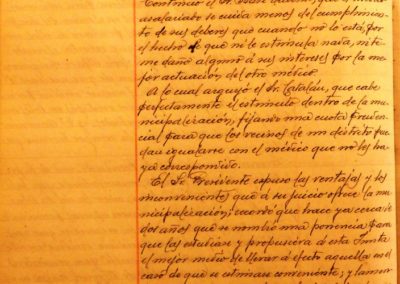 Continuó el Sr.              que el médico
asalariado se cuida menos del cumplimien-
to de sus deberes que cuando no lo está, por
el hecho de que ni le estimula nada, ni te-
me daño alguno á sus intereses por la me-
jor actuación del otro médico.
A lo cual arguyó el Sr. Catalán, que cabe
perfectamente el estímulo dentro de la mu-
nicipalización, fijando una cuota pruden-
cial para que los vecinos de un distrito pue-
dan igualarse con el médico que no les ha-
ya correspondido.
El Sr. Presidente expuso las ventajas y los
inconvenientes que á su juicio ofrece la mu-
nicipalización; recordó que hace ya cerca de
dos años que se nombró una ponencia para
que las estudiase y propusiera á esta Junta
el mejor medio de llevar á efecto aquella en el
caso de que se estimase conveniente; y lamen-